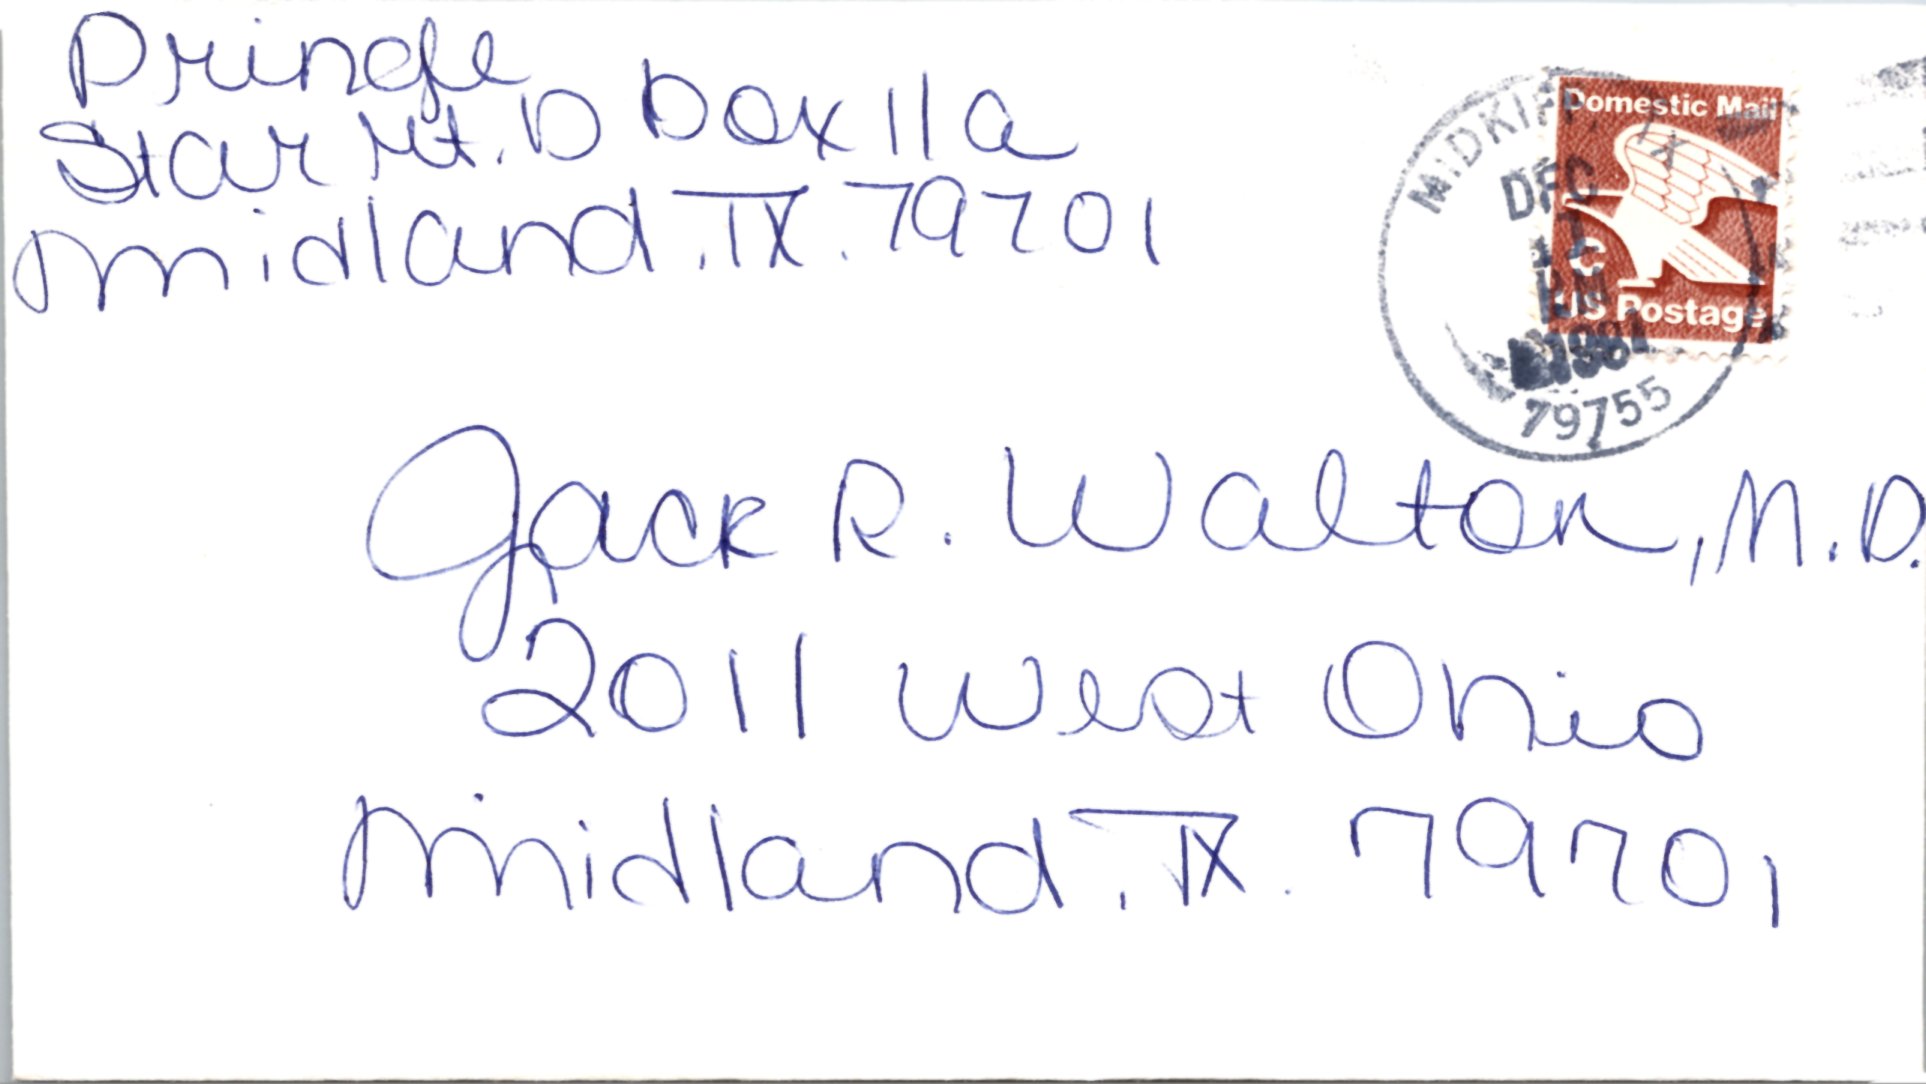 Pringle
Star Rt. D Box 11a
Midland, TX. 79701
MIDKIFF, TX
DEC
PM
1981
79755
Domestic Mail
C
US Postage
Jack R. Walton, M.D.
2011 West Ohio
Midland, TX. 79701